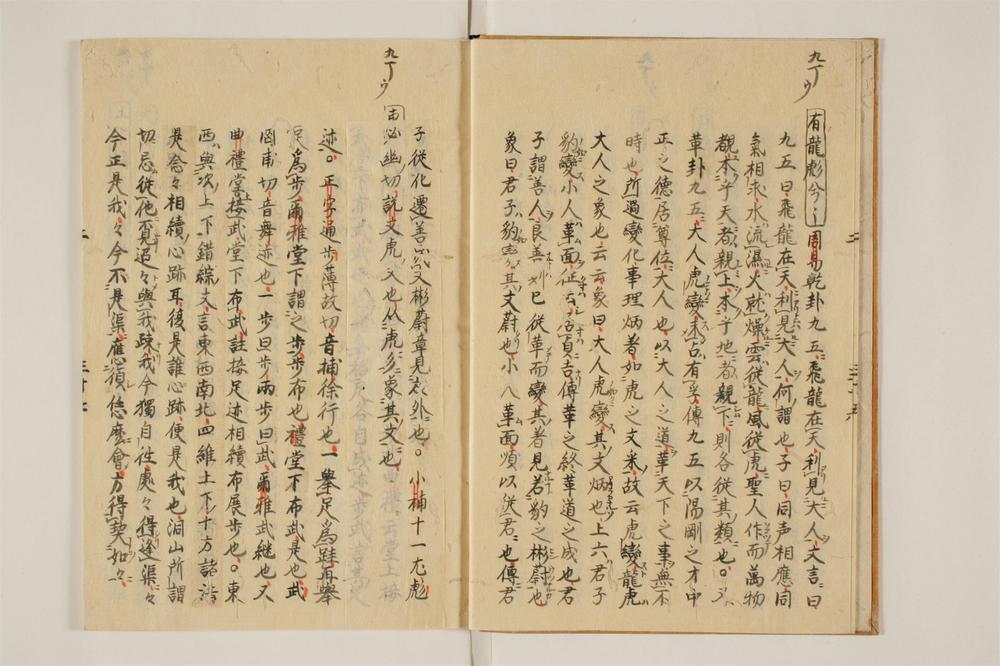 九丁ウ
有龍彪兮々周易乾卦九五飛龍在天利見大人文言曰
九五曰飛龍在天利見大人何謂也子曰同声相應同
氣相求水流濕火就燥雲從龍風從虎聖人作而萬物
覩本乎天者親上本乎地者親下則各從其類也○
革卦九五大人虎變未占有孚傳九五以陽剛之才中
正之德居尊位大人也以大人之道革天下之事無不
時也所過變化事理炳著如虎之文采故云虎變龍虎
大人之象也云云象曰大人虎變其文炳也上六君子
豹變小人革面征凶居貞吉傳革之終革道之成也君
子謂善人良善則已從革而變其著見若豹之彬蔚也
象曰君子豹變其文蔚也小人革面順以從君也傳君
九丁ウ
子從化遷善成文彬蔚章見於外也○小補十一尤彪
必幽切説文虎文也从虎彡象其文也
迹○正字通步薄故切音捕徐行也一擧足爲跬再擧
足爲步爾雅堂下謂之步步布也禮堂下布武是也武
罔甫切音舞迹也一步曰步兩步曰武爾雅武繼也又
曲禮堂上接武堂下布武註接足迹相續布展步也○東
西與次上下錯綜文言東西南北四維上下十方諸法
是念々相續心跡耳復是誰心跡便是我也洞山所謂
切忌從他覓迢々與我疎我今獨自往處々得逢渠々
今正是我々今不是渠應須恁麼會方得契如々